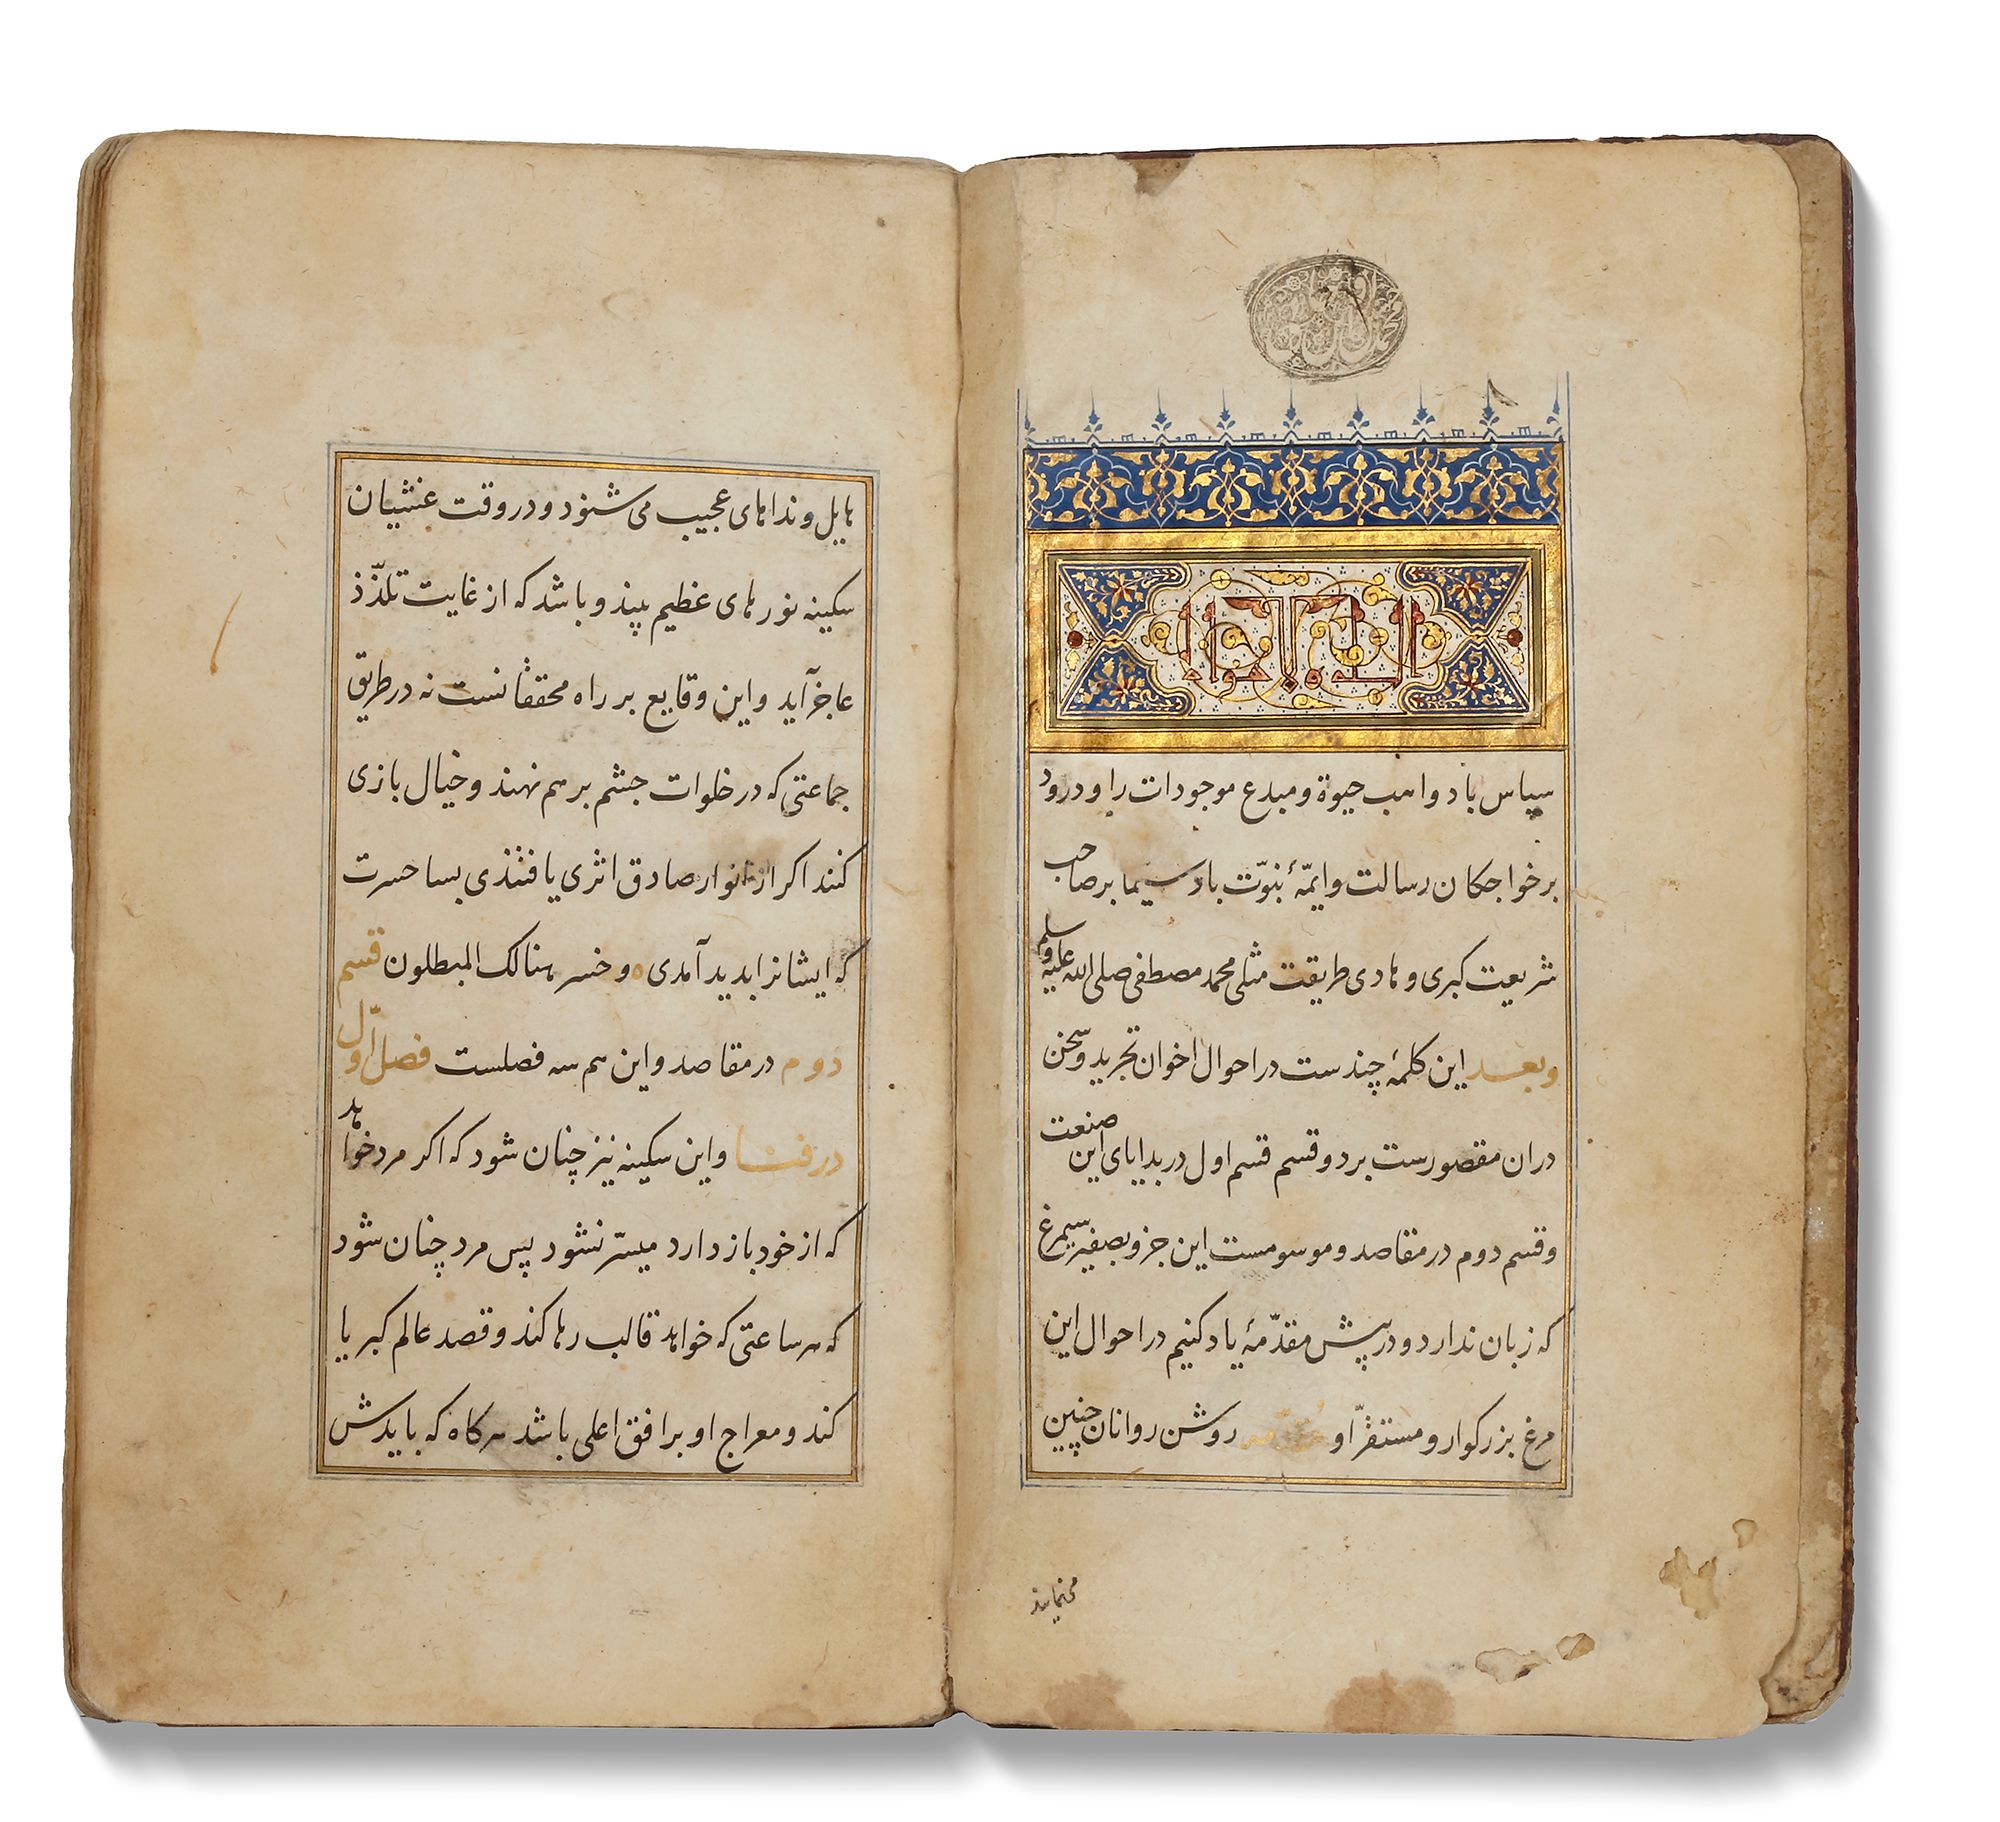 سپاس باد واهب حیوة ومبدع موجودات را ودرود
برخواجکان رسالت وایمّهٔ نبوّت باد سیما برصاحب
شریعت کبری وهادی طریقت مثلی محمد مصطفی صلی الله علیه وسلم
وبعد این کلمهٔ چندست دراحوال اخوان تجرید وسخن
دران مقصورست بردو قسم قسم اول در بدایای این صنعت
وقسم دوم در مقاصد وموسومست این جزو بصفیر سیمرغ
که زبان ندارد ودرپیش مقدّمهٔ یاد کنیم دراحوال این
مرغ بزرکوار ومستقرّ او مقدمه روشن روانان چنین
هایل ونداهای عجیب می شنود ودروقت غشیان
سکینه نورهای عظیم بیند وباشد که از غایت تلذّذ
عاجز آید واین وقایع بر راه محققانست نه درطریق
جماعتی که در خلوات جشم برهم نهند وخیال بازی
کنند اکر از انوار صادق اثری یافتندی بسا حسرت
که ایشانرا بدید آمدی ه وخسر هنالک المبطلون قسم
دوم در مقاصد واین هم سه فصلست فصل اوّل
در فنا واین سکینه نیز چنان شود که اکر مرد خواهد
که از خود باز دارد میسّر نشود پس مرد چنان شود
که هر ساعتی که خواهد قالب رها کند وقصد عالم کبریا
کند ومعراج او برافق اعلی باشد هرکاه که بایدش